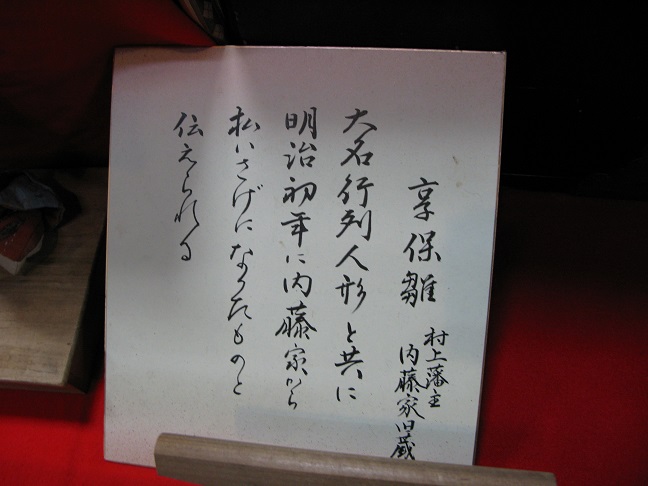 享保雛
村上藩主
内藤家旧蔵
大名行列人形と共に
明治初年に内藤家から
払いさげになったものと
伝えられる